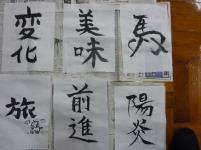 変化
美味
馬
旅
前進
陽炎